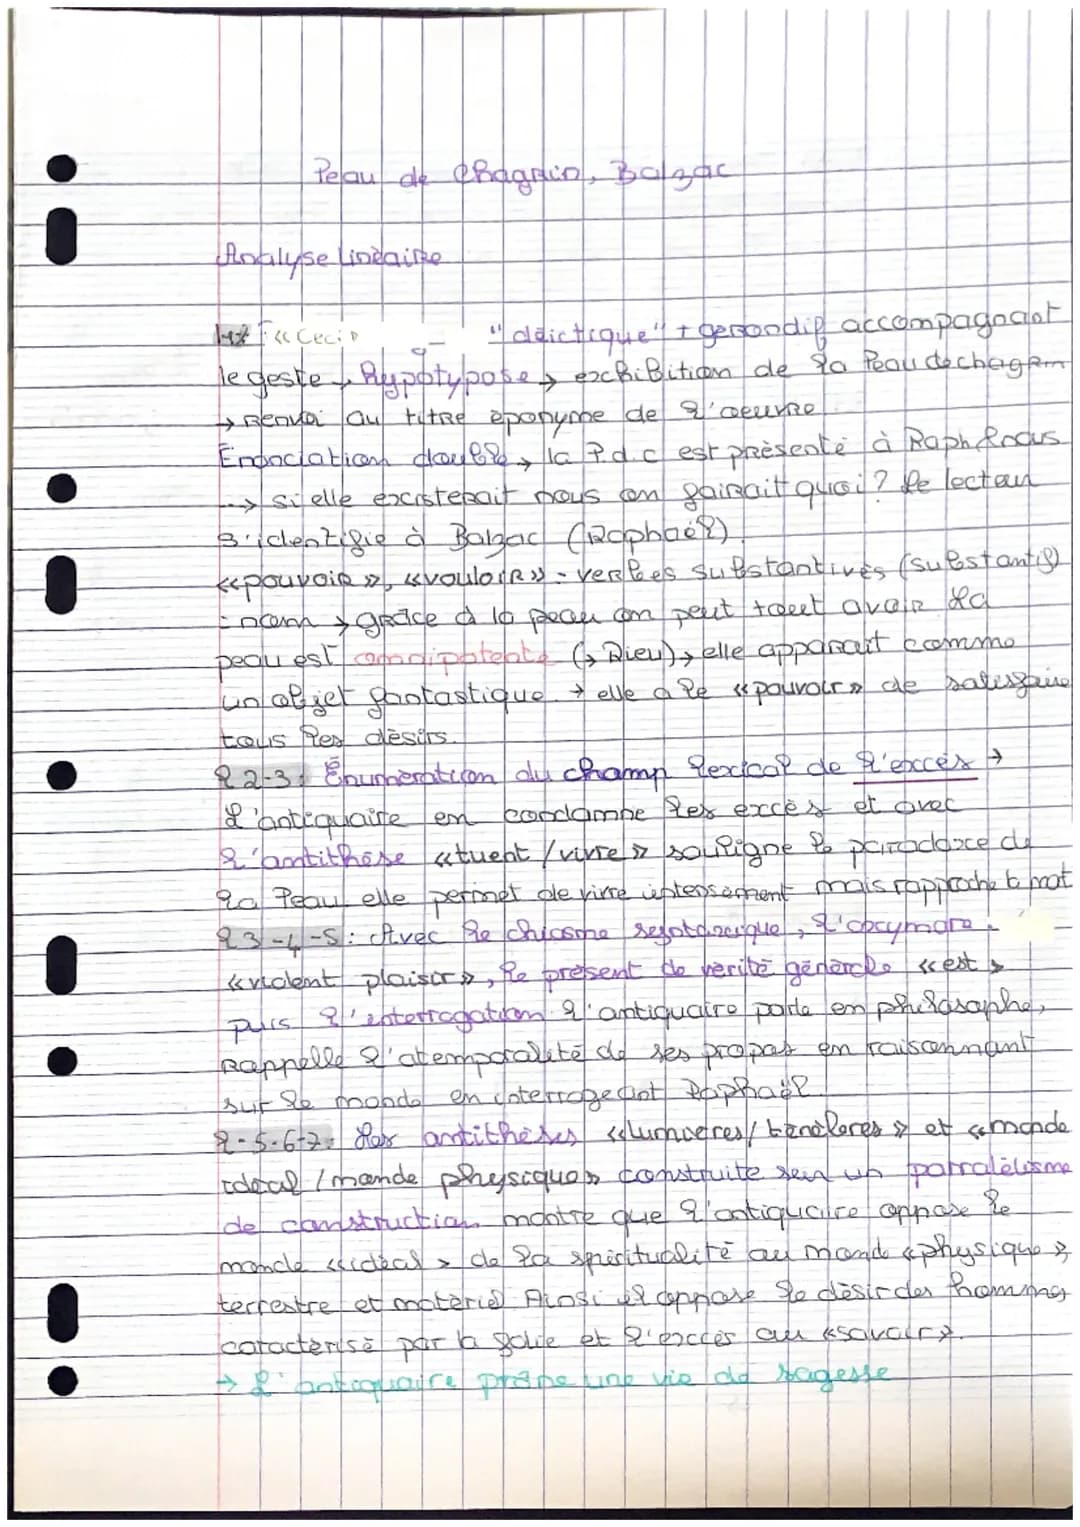 Peau de Chagrin, Balzac
Analyse linéaire
« Ceci » "déictique" + gerondif accompagnant
le geste, Hypotypose → exhibition de la Peau de chagrin
→ Renvoi au titre éponyme de l'oeuvre
Énonciation double, la P.d.c est présenté à Raph & nous
--> si elle existerait nous on fairait quoi? Le lecteur
s'identifie à Balzac (Raphaël)
«pouvoir», «vouloir» = verbes substantivés (substantif)
= nom → grâce à la peau on peut tout avoir la
peau est omnipotente (→ Dieu) → elle apparait comme
un objet fantastique → elle a le «pouvoir» de satisfaire
tous les désirs.
l 2-3: Énumération du champ lexical de l'excès →
L'antiquaire en condamne les excès et avec
l'antithèse «tuent / vivre» souligne le paradoxe de
la Peau elle permet de vivre intensément mais rapproche la mort
l 3-4-5: Avec le chiasme , l'oxymore
«violent plaisir», le présent de vérité générale «est»
puis l'interrogation l'antiquaire parle en philosophe,
rappelle l'atemporalité de ses propos en raisonnant
sur le monde en interrogeant Raphaël
l-5-6-7: Les antithèses «lumières/ténèbres» et «monde
idéal / monde physique» construite sur un parralélisme
de construction montre que l'antiquaire oppose le
monde «idéal» de la spiritualité au monde «physique»
terrestre et matériel Ainsi il oppose le désir des hommes
caractérisé par la folie et l'excès au «savoir».
→ L'antiquaire prône une vie de sagesse